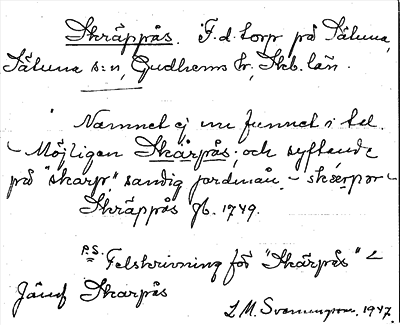 Skräppås. F.d. torp på Sätuna,
Sätuna s:n, Gudhems hr, Skb. län.
Namnet ej nu funnet i bel.
Möjligen Skärpås, och syftande
på "skarp", sandig jordmån - skærpor -
Skräppås jb. 1749.
P.S. Felskrivning för "Skärpås"
Jämf Skarpås
L.M. Svenungsson. 1947.